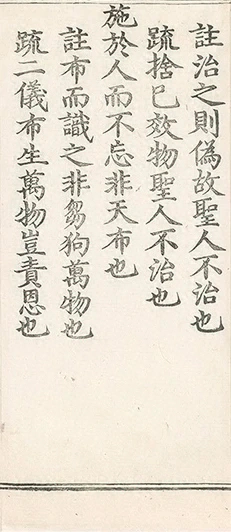 註治之則偽故聖人不治也
疏捨己效物聖人不治也
施於人而不忘非天布也
註布而識之非芻狗萬物也
疏二儀布生萬物豈責恩也